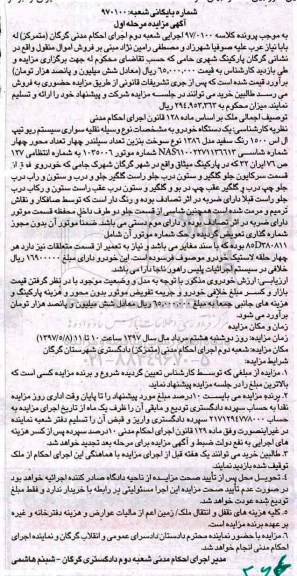 شماره بایگانی شعبه: ۹۷۰۱۰۰
آگهی مزایده مرحله اول
به موجب پرونده کلاسه ۹۷/۰۱۰۰ اجرایی شعبه دوم اجرای احکام مدنی گرگان (متمرکز) له
بابانیاز عرب علیه صوفیا شهرزاد و مصطفی رامین نژاد مبنی بر فروش اموال منقول واقع در
نشانی گرگان پارکینگ شهری حامی که حسب تقاضای محکوم له جهت برگزاری مزایده و
طی بازدید کارشناس به قیمت ۶۵,۰۰۰,۰۰۰ ریال (معادل شش میلیون و پانصد هزار تومان)
برآورد قیمت شده است که پس از جری تشریفات قانونی از طریق مزایده حضوری به فروش
می رسد. طالبین خرید می توانند در جلسه مزایده شرکت و پیشنهاد خود را ارائه و تسلیم
نمایند. میزان محکوم به ۲۹۴,۹۵۳,۳۶۳ ریال
توصیف اجمالی ملک بر اساس ماده ۱۲۸ قانون اجرای احکام مدنی
نظریه کارشناسی: یک دستگاه خودرو به مشخصات نوع وسیله نقلیه سواری سیستم ریو تیپ
ال اس ۱۵۰۰ رنگ سفید مدل ۱۳۸۶ نوع سوخت بنزین تعداد سیلندر چهار تعداد محور چهار
شماره شاسی به شماره انتظامی ۱۲۷
ص ۷۶ ایران ۳۲ که در پارکینگ میثاق واقع در شهر گرگان شهرک جامی که خودروی فوق از
قسمت سرکابین جلو گلگیر و ستون درب جلو راست گلگیر جلو و درب و ستون و رکاب درب
جلو چپ درب و گلگیر عقب چپ در بو و گلگیر و ستون درب عقب راست ستون و رکاب درب
جلو راست قبلا دارای ضربه در اثر تصادف بوده و دارای رنگ در است که توسط صافکار و نقاش
ترمیم و مرمت شده است همچنین شاسی از قسمت جلو دو طرف داخل محفظه قسمت موتور
دارای ضربه در اثر تصادف بوده و دارای موم دستی می باشد ضمنا موتور آن بدون مجوز
شماره گذاری تعویض گردیده و حک شماره موتور آن شامل
بوده که با سند مغایر می باشد و نیاز به تعمیر از قسمت متعلقات نیز دارد هر
چهار حلقه لاستیک خودرو موصوف فرسوده است. این خودرو دارای مبلغ ۱۶۹۰۰۰۰۰ ریال
خلافی در سیستم اجرائیات پلیس راهور ناجا دارا می باشد
ارزیابی: ارزش خودروی مذکور با توجه به مدل و وضعیت موجود با در نظر گرفتن قیمت
بازار و کسر مبلغ خلافی خودرو و جریمه تفویض موتور بدون محور و هزینه پارکینگ و
هزینه های جانبی جمعا به مبلغ ۶۵,۰۰۰,۰۰۰ ریال معادل شش میلیون و پانصد هزار تومان
برآورد می شود.
زمان و مکان مزایده
زمان مزایده: روز دوشنبه هشتم مرداد مال سال ۱۳۹۷ ساعت ۱۰ تا ۱۱ (۱۳۹۷/۵/۸)
مکان مزایده: شعبه دوم اجرای احکام مدنی (متمرکز) دادگستری شهرستان گرگان
شرایط مزایده:
۱. مزایده از مبلغی که توسط کارشناس تعیین گردیده شروع و برنده مزایده کسی است که
بالاترین مبلغ را در جلسه مزایده پیشنهاد نماید.
۲. برنده مزایده می بایست ۱۰ درصد مبلغ مورد پیشنهاد را تا پایان وقت اداری روز مزایده
نقدا به حساب سپرده دادگستری تودیع و مابقی آن را ظرف یک ماه از تاریخ اجرای مزایده به
حساب ۲۱۷۱۲۹۴۷۷۸۰۰۰ سپرده دادگستری واریز و قبض آن را تسلیم دفتر شعبه نماینده
در غیر اینصورت وفق ماده ۱۲۹ قانون اجرای احکام مدنی ۱۰ درصد سپرده پس از کسر هزینه
های اجرایی به نفع دولت ضبط و آگهی مزایده برای مرحله بعد تجدید خواهد شد.
۳. طالبین خرید می توانند یک هفته قبل از اجرای مزایده با هماهنگی این اجرای احکام از ملک
توقیف شده بازدید نمایند.
۴. تحویل محل پس از تأیید صحت مزایده از ناحیه دادگاه صادر کننده اجرائیه خواهد بود
در صورت عدم تأیید صحت مزایده این اجرا مسئولیتی پر رابطه با خریدار ندارد و فقط مبلغ
تودیع شده عودت می شود.
۵. کلیه هزینه های نقل و انتقال ملک/زمین اعم از مالیات عوارض و هزینه دفترخانه و غیره
بر عهده برنده مزایده است.
۶. مزایده با حضور نماینده محترم دادستان دادسرای عمومی و انقلاب گرگان و نماینده اجرای
احکام مدنی انجام خواهد شد.
مدیر اجرای احکام مدنی شعبه دوم دادگستری گرگان - شبنم هاشمی